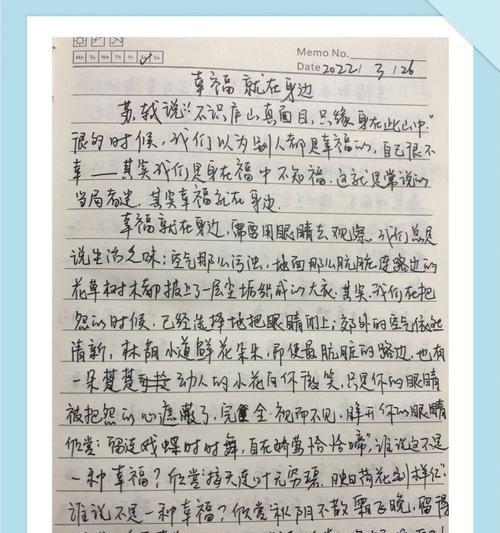 Memo No.
Mo Tu We Th Fr Sa Su
Date 2022 / 3 / 26
幸福就在身边
苏轼说“不识庐山真面目,只缘身在此山中”
很多时候,我们以为别人都是幸福的,自己很不
幸——其实我们是身在福中不知福,这就是常说的
当局者迷,其实幸福就在身边.
幸福就在身边,需要用眼睛去观察.我们总是
说生活乏味;空气那么污浊,地面那么肮脏,连路边的
花草树木都披上了一层尘垢织成的大衣.其实,我们在抱
怨的时候,已经选择地把眼睛闭上;郊外的空气依然
清新,林荫小道鲜花朵朵,即使最肮脏的路边,也有
一朵楚楚动人的小花向你微笑,只是你的眼睛
被抱怨的心遮蔽了,完全视而不见.睁开你的眼睛
欣赏:留连戏蝶时时舞,自在娇莺恰恰啼”,谁说这不是
一种幸福?欣赏“接天莲叶无穷碧,映日荷花别样红”
谁说不是一种幸福?欣赏秋阴不散霜飞晚,留得